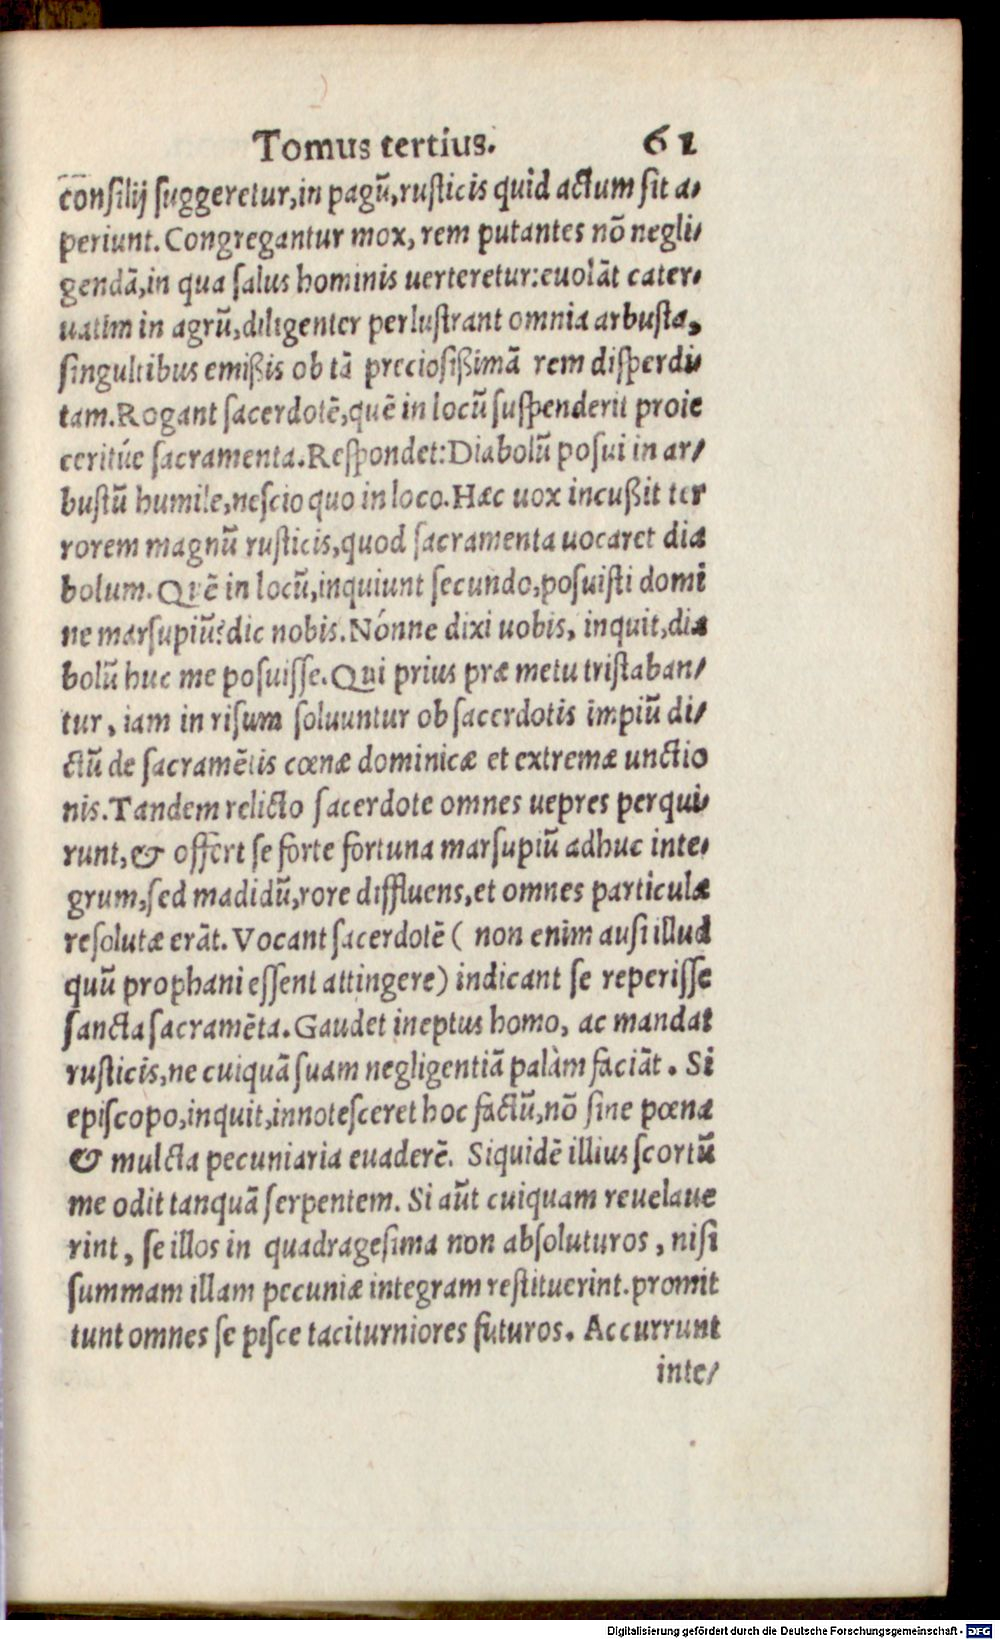 Tomus tertius. 61
consilij suggeretur, in pagũ, rusticis quid actum sit a⸗
periunt. Congregantur mox, rem putantes nõ negli⸗
gendã, in qua salus hominis uerteretur: euolãt cater⸗
uatim in agrũ, diligenter perlustrant omnia arbusta,
singultibus emißis ob tã preciosißimã rem disperdi⸗
tam. Rogant sacerdotẽ, quẽ in locũ suspenderit proie
ceritúe sacramenta. Respondet: Diabolũ posui in ar⸗
bustũ humile, nescio quo in loco. Hæc uox incußit ter
rorem magnũ rusticis, quod sacramenta uocaret dia
bolum. Quẽ in locũ, inquiunt secundo, posuisti domi
ne marsupiũ? dic nobis. Nónne dixi uobis, inquit, dia
bolũ huc me posuisse. Qui prius præ metu tristaban⸗
tur, iam in risum soluuntur ob sacerdotis impiũ di⸗
ctũ de sacramẽtis cœnæ dominicæ et extremæ unctio
nis. Tandem relicto sacerdote omnes uepres perqui⸗
runt, & offert se forte fortuna marsupiũ adhuc inte⸗
grum, sed madidũ, rore diffluens, et omnes particulæ
resolutæ erãt. Vocant sacerdotẽ ( non enim ausi illud
quũ prophani essent attingere) indicant se reperisse
sancta sacramẽta. Gaudet ineptus homo, ac mandat
rusticis, ne cuiquã suam negligentiã palàm faciãt. Si
episcopo, inquit, innotesceret hoc factũ, nõ sine pœna
& mulcta pecuniaria euaderẽ. Siquidẽ illius scortũ
me odit tanquã serpentem. Si aũt cuiquam reuelaue
rint, se illos in quadragesima non absoluturos, nisi
summam illam pecuniæ integram restituerint. promit
tunt omnes se pisce taciturniores futuros. Accurrunt
inte⸗
Digitalisierung gefördert durch die Deutsche Forschungsgemeinschaft - DFG